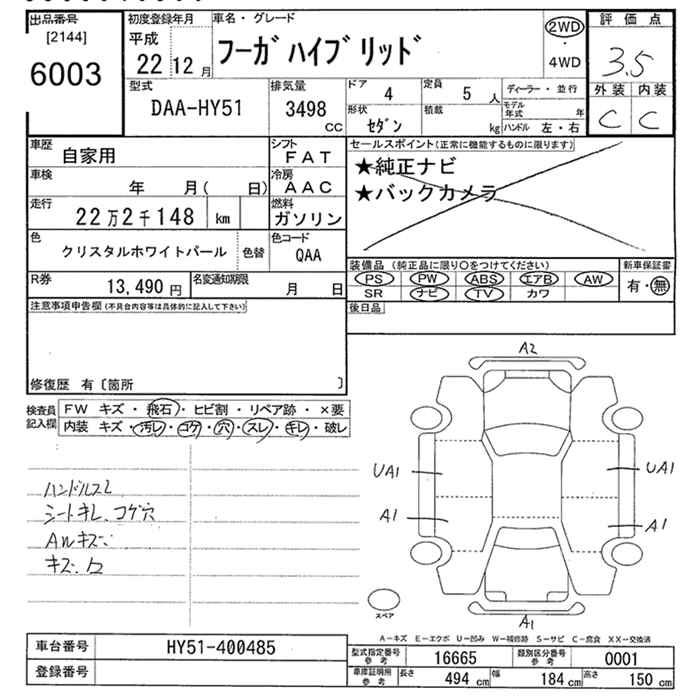 出品番号
[2144]
6003
初度登録年月
平成
22 12 月
車名・グレード
フーガハイブリッド
2WD
・
4WD
評価点
3.5
外装 内装
C C
型式
DAA-HY51
排気量
3498
CC
ドア
4
定員
5 人
形状
セダン
積載
kg
ディーラー・並行
モデル年式 年
ハンドル 左・右
車歴
自家用
シフト
FAT
車検
年 月( 日)
冷房
AAC
走行
22万2千148 km
燃料
ガソリン
色
クリスタルホワイトパール
色替
色コード
QAA
R券
13,490 円
名変通知期限
月 日
セールスポイント(正常に機能するものに限ります)
★純正ナビ
★バックカメラ
装備品(純正品に限り○をつけてください)
PS PW ABS エアB AW
SR ナビ TV カワ
新車保証書
有・無
後日品
注意事項申告欄(不具合内容等は具体的に記入して下さい)
修復歴 有〔箇所 〕
検査員
記入欄
FW キズ・飛石・ヒビ割・リペア跡・×要
内装 キズ・汚レ・コゲ・穴・スレ・キレ・破レ
ハンドルスレ
シートキレ、コゲ穴
AWキズ
A2
UA1
UA1
A1
A1
A1
スペア
A-キズ E-エクボ U-凹み W-補修跡 S-サビ C-腐食 XX-交換済
車台番号
HY51-400485
登録番号
型式指定番号
参考
16665
類別区分番号
参考
0001
車庫証明用
参考
長さ 494 cm
幅 184 cm
高さ 150 cm